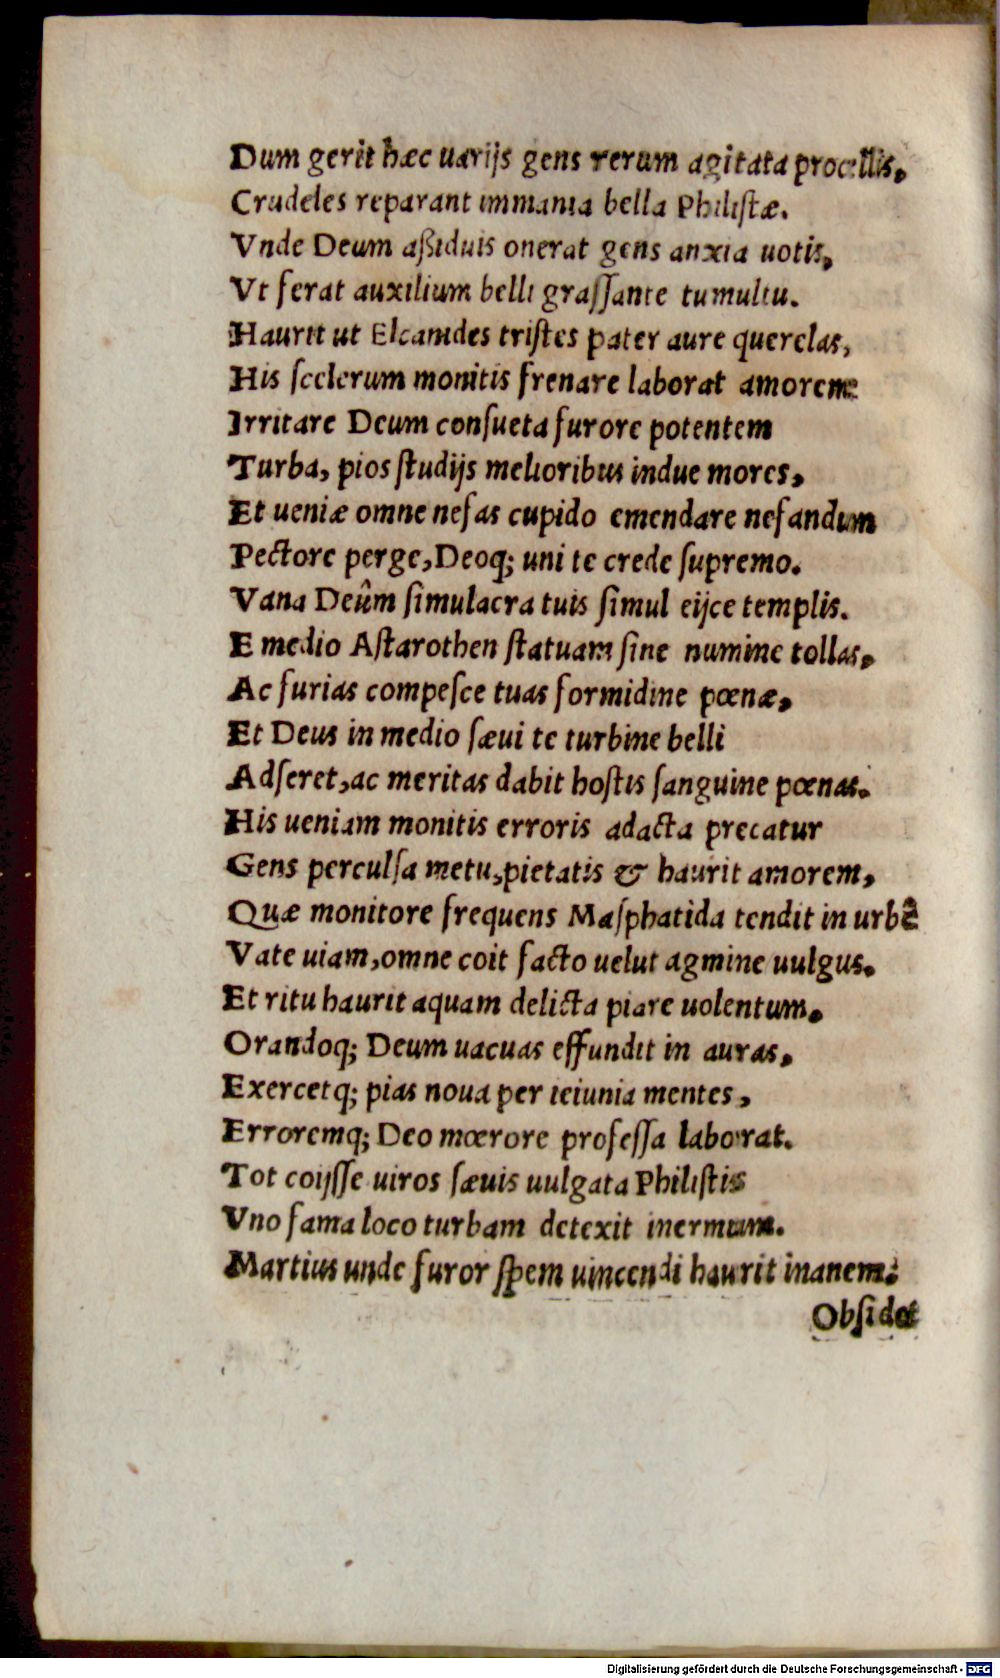 Dum gerit hæc uarijs gens rerum agitata procellis,
Crudeles reparant immania bella Philistæ.
Vnde Deum aßiduis onerat gens anxia uotis,
Vt ferat auxilium belli graſſante tumultu.
Haurit ut Elcanides triſtes pater aure querelas,
His ſcelerum monitis frenare laborat amorem:
Irritare Deum conſueta furore potentem
Turba, pios ſtudijs melioribus indue mores,
Et ueniæ omne nefas cupido emendare nefandum
Pectore perge, Deoq; uni te crede ſupremo.
Vana Deûm ſimulacra tuis ſimul eijce templis.
E medio Aſtarothen ſtatuam ſine numine tollas,
Ac furias compeſce tuas formidine pœnæ,
Et Deus in medio ſæui te turbine belli
Adſeret, ac meritas dabit hoſtis ſanguine pœnas.
His ueniam monitis erroris adacta precatur
Gens perculſa metu, pietatis & haurit amorem,
Quæ monitore frequens Maſphatida tendit in urbẽ
Vate uiam, omne coit facto uelut agmine uulgus.
Et ritu haurit aquam delicta piare uolentum,
Orandoq; Deum uacuas effundit in auras,
Exercetq; pias noua per ieiunia mentes,
Erroremq; Deo mœrore profeſſa laborat.
Tot coijſſe uiros ſæuis uulgata Philiſtis
Vno fama loco turbam detexit inermum.
Martius unde furor ſpem uincendi haurit inanem:
Obſidet
Digitalisierung gefördert durch die Deutsche Forschungsgemeinschaft - DFG